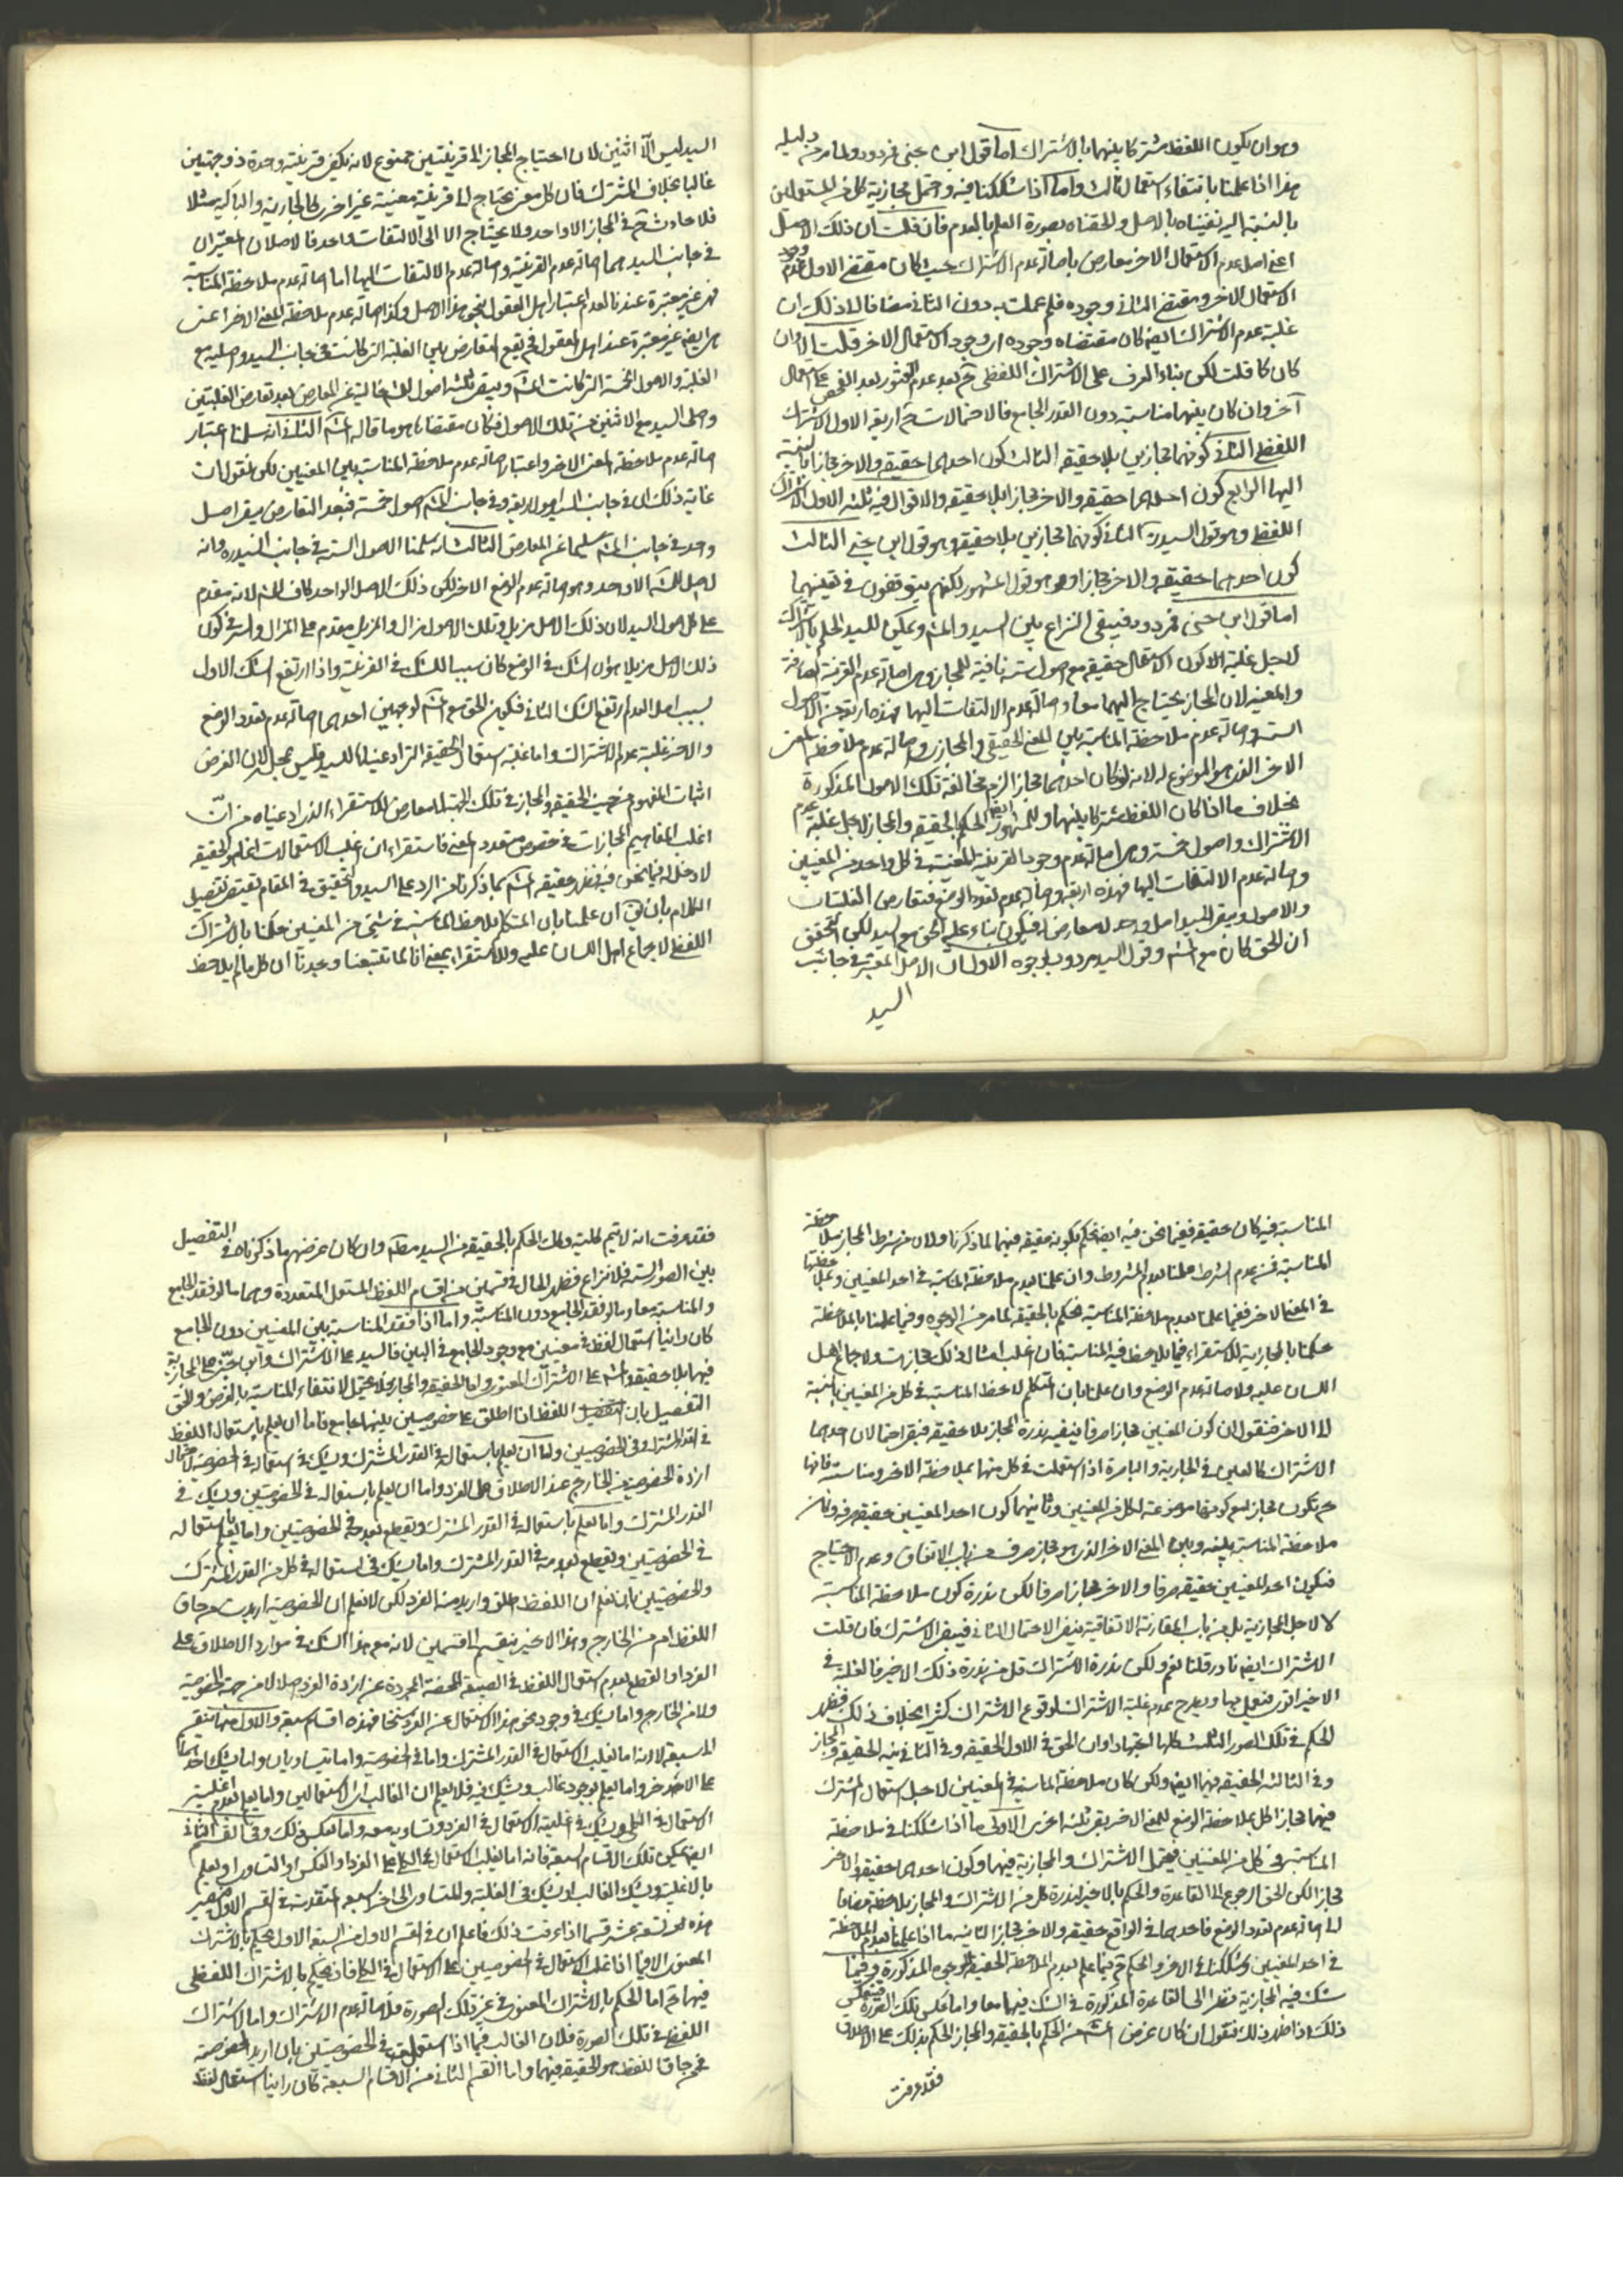 وهو ان يكون اللفظ مشتركا بينهما بالاشتراك اما قول ابن جنى فمردود ولما مر من دليله
هذا اذا علمنا بانتفاء استعمال ثالث واما اذا شككنا فيه واحتمل مجازية كل من المستعملين
بالنسبة اليه نفيناه بالاصل والحقناه بصورة العلم بالعدم فان قلت ان ذلك الاصل
اعنى اصل عدم الاستعمال الاخر معارض باصالة عدم الاشتراك حيث كان مقتضى الاول عدم وجود
الاستعمال الاخر ومقتضى الثانى وجوده فلم عملت به دون الثانى مضافا الى ذلك ان
غلبة عدم الاشتراك ايضا كان مقتضاه وجوده اى وجود الاستعمال الاخر قلت الا وان
كان كما قلت لكن بناء العرف على الاشتراك اللفظى ثم بعد عدم العثور بعد الفحص على استعمال
آخر وان كان بينهما مناسبة دون القدر الجامع فالاحتمالات ح اربعة الاول الاشتراك
اللفظى الثانى كونهما مجازين بلا حقيقة الثالث كون احدهما حقيقة والاخر مجازا بالنسبة
اليها الرابع كون احدهما حقيقة والاخر مجازا بلا حقيقة والاقوال فيه ثلثة الاول الاشتراك
اللفظى وهو قول السيد ره الثانى كونهما مجازين بلا حقيقة وهو قول ابن جنى الثالث
كون احدهما حقيقة والاخر مجازا وهو قول المشهور لكنهم يتوقفون فى تعيينهما
اما قول ابن جنى فمردود فيبقى النزاع بين السيد والمش ويمكن للسيد الحكم بالاشتراك
لاجل غلبة الاكون الاستعمال حقيقة مع اصول ستة نافية للمجاز وهى اصالة عدم القرينة الصارفة
والمعينة لان المجاز يحتاج اليهما معا واصالة عدم الالتفات اليها فهذه اربعة من الاصول
الستة واصالة عدم ملاحظة المناسبة بين المعنى الحقيقى والمجازى واصالة عدم ملاحظة المعنى
الاخر الذى هو الموضوع له لانه لو كان احدهما مجازا لزم مخالفة تلك الاصول المذكورة
بخلاف ما اذا كان اللفظ مشتركا بينهما وللمشهور ايضا الحكم بالحقيقة والمجاز لاجل غلبة عدم
الاشتراك واصول خمسة وهى اصالة عدم وجود القرينة المعينة فى كل واحد من المعنيين
واصالة عدم الالتفات اليها فهذه اربعة واصالة عدم تعدد الوضع فتعارض الغلبتان
والاصول ويبقى للسيد اصل واحد لا معارض له فيكون بناء عليه الحق مع السيد لكن التحقيق
ان الحق كان مع المش وقول السيد مردود بوجوه الاول ان الاصل المعتبر فى جانب
السيد
السيد ليس الا اثنين لان احتياج المجاز الى قرينتين ممنوع لانه يكفى قرينة واحدة ذو جهتين
غالبا بخلاف المشترك فان كل معنى يحتاج الى قرينة معينة غير اخرى كالجارية والباكية مثلا
فلا حادث ح فى المجاز الا واحد ولا يحتاج الا الى الالتفات واحد فالاصلان المعتبران
فى جانب السيد هما اصالة عدم القرينة واصالة عدم الالتفات اليها اما اصالة عدم ملاحظة المناسبة
فهى غير معتبرة عندنا لعدم اعتبار اهل العقول بنحو هذا الاصل وكذا اصالة عدم ملاحظة المعنى الاخر اعنى
هى ايضا غير معتبرة عند اهل العقول فح يقع التعارض بين الغلبة التى كانت فى جانب السيد واصليه مع
الغلبة والاصول الخمسة التى كانت للمش ويبقى ثلثة اصول للمش خالية عن المعارض بعد تعارض الغلبتين
واصلى السيد مع الاثنين من تلك الاصول فكان مقتضاها هو ما قاله المش الثانى انه سلمنا اعتبار
اصالة عدم ملاحظة المعنى الاخر واعتبار اصالة عدم ملاحظة المناسبة بين المعنيين لكن نقول ان
غاية ذلك ان فى جانب السيد اصول اربعة وفى جانب المش اصول خمسة فبعد التعارض يبقى اصل
واحد فى جانب المش سليما عن المعارض الثالث انه سلمنا الاصول الستة فى جانب السيد ره وانه
لا اصل للمش الا واحد وهو اصالة عدم الوضع الاخر لكن ذلك الاصل الواحد كاف للمش لانه مقدم
على كل اصول السيد لان ذلك الاصل مزيل وتلك الاصول مزال والمزيل مقدم على المزال والسر فى كون
ذلك الاصل مزيلا هو ان الشك فى الوضع كان سببا للشك فى القرينة واذا ارتفع الشك الاول
بسبب اصل العدم ارتفع الشك الثانى فيكون الحق مع المش لوجهين احدهما اصالة عدم تعدد الوضع
والاخر غلبة عدم الاشتراك واما غلبة استعمال الحقيقة التى ادعيناها للسيد فليس بمحل لان الغرض
اثبات المفهوم من حيث الحقيقة والمجاز فى تلك الجهة معارض للاستقراء الذى ادعيناه من انّ
اغلب المفاهيم المجازات فى خصوص متعدد المعنى فاستقراء ان اغلب الاستعمالات انما هو الحقيقة
لا دخل له فيما نحن فيه فظهر حقيقة المش بما ذكرنا من الرد على السيد والتحقيق فى المقام يقتضى تفصيل
الكلام بان نق ان علمنا بان المتكلم يلاحظ المناسبة فى شئ من المعنيين حكمنا بالاشتراك
اللفظى لاجماع اهل اللسان عليه وللاستقراء بمعنى انا لما تتبعنا وجدنا ان كل ما لم يلاحظ
المناسبة فيه كان حقيقة ففيما نحن فيه ايضا نحكم بكونه حقيقة فيهما لما ذكرنا ولان من شرط المجاز ملاحظة
المناسبة فمن عدم الشرط علمنا بعدم المشروط وان علمنا بعدم ملاحظة المناسبة فى احد المعنيين وعلمنا بملاحظتها
فى المعنى الاخر ففيما علمنا بعدم ملاحظة المناسبة نحكم بالحقيقة لما مر من الوجوه وفيما علمنا بالملاحظة
حكمنا بالمجازية للاستقراء فيما يلاحظ فيه المناسبة فان اغلب امثال ذلك مجازات ولاجماع اهل
اللسان عليه ولاصالة عدم الوضع وان علمنا بان المتكلم لاحظ المناسبة فى كل من المعنيين بالنسبة
الى الاخر فنقول ان كون المعنيين مجازا صرفا ينفيه ندرة المجاز بلا حقيقة فبقى احتمالان احدهما
الاشتراك كالعين فى الجارية والباصرة اذا استعملت فى كل منهما بملاحظة الاخر ومناسبته فانها
ح تكون مجازا مع كونها موضوعة لكل من المعنيين وثانيهما كون احد المعنيين حقيقة صرفة وكان
ملاحظة المناسبة بينه وبين المعنى الاخر الذى هو مجاز صرف من باب الاتفاق وعدم الاحتياج
فيكون احد المعنيين حقيقة صرفا والاخر مجازا صرفا لكن ندرة كون ملاحظة المناسبة
لا لاجل المجازية بل من باب المقارنة الاتفاقية ينفى الاحتمال الثانى فيبقى الاشتراك فان قلت
الاشتراك ايضا نادر قلنا نعم ولكن ندرة الاشتراك اقل من ندرة ذلك الاخير فالغلبة فى
الاخير اقوى فنعمل بها ويطرح بعدم غلبة الاشتراك لوقوع الاشتراك كثيرا بخلاف ذلك فظهر
الحكم فى تلك الصور الثلث كلها اجتهادا وان الحق فى الاول الحقيقة وفى الثانى فيه الحقيقة والمجاز
وفى الثالثة الحقيقة فيهما ايضا ولكن كان ملاحظة المناسبة فى المعنيين لاجل استعمال المشترك
فيهما مجازا كل بملاحظة الوضع للمعنى الاخر بقى ثلثة اخرى الاولى ما اذا شككنا فى ملاحظة
المناسبة فى كل من المعنيين فيحتمل الاشتراك والمجازية فيهما وكون احدهما حقيقة والاخر
مجازا لكن الحق الرجوع الى القاعدة والحكم بالاخير لندرة كل من الاشتراك والمجاز بلا حقيقة مضافا
الى اصالة عدم تعدد الوضع فاحدهما فى الواقع حقيقة والاخر مجاز الثانية ما اذا علمنا بعدم الملاحظة
فى احد المعنيين وشككنا فى الاخر والحكم ح فيما علم بعدم الملاحظة الحقيقة للوجوه المذكورة وفيما
شك فيه المجازية نظرا الى القاعدة المذكورة فى الشك فيهما معا واما عكس تلك الصورة فينعكس
ذلك اذا ظهر ذلك فنقول ان كان غرض المش من الحكم بالحقيقة والمجاز الحكم بذلك على الاطلاق
فقد عرفت
فقد عرفت انه لا يتم كلية وكك الحكم بالحقيقة من السيد مطلقا وان كان غرضهم ما ذكرناه فى التفصيل
بين الصور الستة فلا نزاع فظهر الحال فى قسمين من اقسام اللفظ المستعمل المتعددة وهما ما لو فقد الجامع
والمناسبة معا وما لو فقد الجامع دون المناسبة واما اذا فقد المناسبة بين المعنيين دون الجامع
كان راينا استعمال لفظ فى معنيين مع وجود الجامع فى البين فالسيد على الاشتراك وابن جنى على المجازية
فيهما بلا حقيقة والمش على الاشتراك المعنوى واما الحقيقة والمجاز فلا يحتمل لانتفاء المناسبة بالفرض والحق
التفصيل بان اللفظ اذا اطلق على خصوصيين بينهما جامع فاما ان يعلم باستعمال اللفظ
فى القدر المشترك وفى الخصوصيتين واما ان يعلم باستعماله فى القدر المشترك ويشك فى استعماله فى الخصوصية لاحتمال
ارادة الخصوصية من الخارج عند الاطلاق على الفرد واما ان يعلم باستعماله فى الخصوصيتين ويشك فى
القدر المشترك واما يعلم باستعماله فى القدر المشترك ويقطع بعدمه فى الخصوصيتين واما يعلم باستعماله
فى الخصوصيتين ويقطع بعدمه فى القدر المشترك واما يشك فى استعماله فى كل من القدر المشترك
والخصوصيتين بان نعلم ان اللفظ اطلق واريد منه الفرد لكن لا نعلم ان الخصوصية اريدت من حاق
اللفظ ام من الخارج وهذا الاخير ينقسم الى قسمين لانه مع هذا الشك فى موارد الاطلاق على
الفرد اما القطع بعدم استعمال اللفظ فى الصيغة المحضة المجردة عن ارادة الفرد اصلا لا من حيث الخصوصية
ولا من الخارج واما يشك فى وجود نحو هذا الاستعمال عن الفرد منسخا فهذه اقسام سبعة والاول منها ينقسم
الى سبعة لانه اما يغلب الاستعمال فى القدر المشترك واما فى الخصوصية واما يتساويان واما يشك احدهما
على الاخر واما يعلم بوجود غالب ويشك فيه فلا يعلم ان الغالب اى الاستعمالين واما يعلم بعدم اغلبية
الاستعمال فى الكلى ويشك فى اغلبية الاستعمال فى الفرد وتساويه معه واما بعكس ذلك وفى القسم الثانى
ايضا يمكن تلك الاقسام السبعة فانه اما يغلب الاستعمال فى الكلى على الفرد او العكس او التساوى او يعلم
بالاغلبية ويشك الغالب او يشك فى الغلبة والتساوى الى اخر السبعة المتقدمة فى القسم الاول فيصير
هذه تسعة عشر قسما اذا عرفت ذلك فاعلم ان فى القسم الاول من السبعة الاول يحكم بالاشتراك
المعنوى الا فيما اذا غلب الاستعمال فى الخصوصيتين على الاستعمال فى الكلى فانه يحكم بالاشتراك اللفظى
فيهما ح اما الحكم بالاشتراك المعنوى فى غير تلك الصورة فلاصالة عدم الاشتراك واما الاشتراك
اللفظى فى تلك الصورة فلان الغالب فيما اذا استعمل لفظ فى الخصوصيتين بان اريد الخصوصية
من حاق اللفظ هو الحقيقة فيهما واما القسم الثانى من الاقسام السبعة كان راينا استعمال لفظ